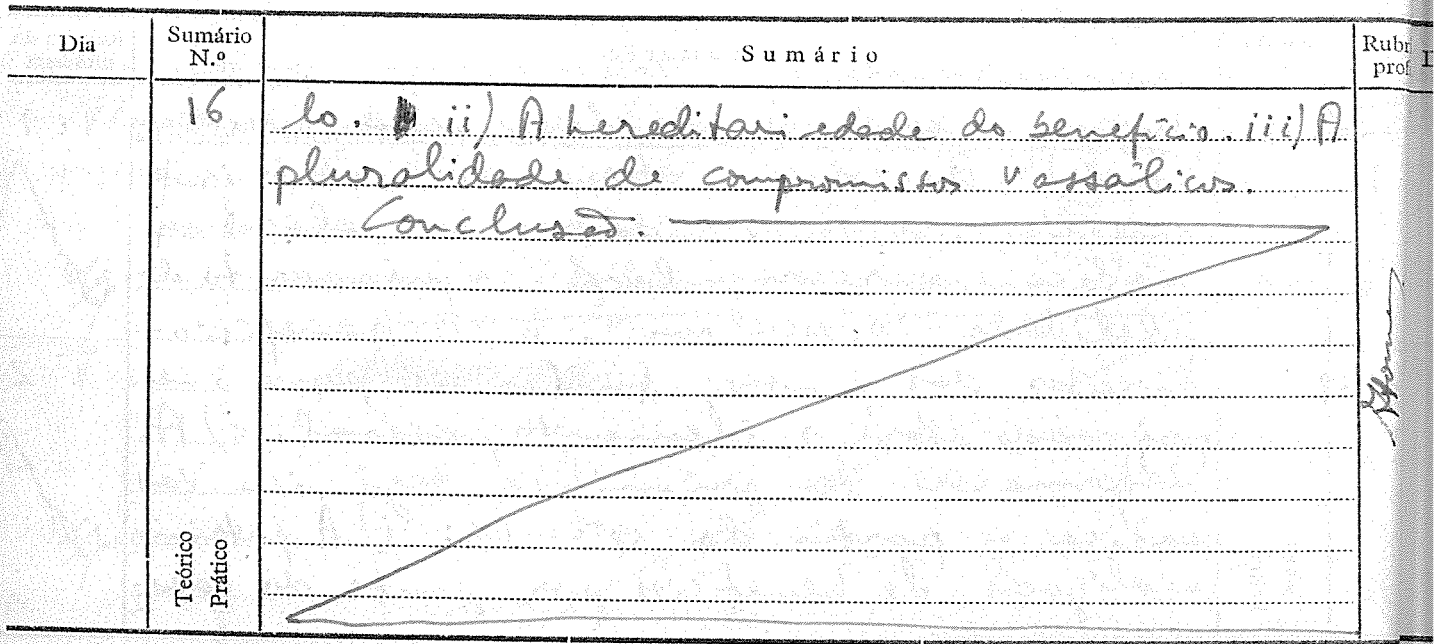 Dia
Sumário N.º
Sumário
Rubr
prof
16
lo. ii) A hereditariedade do benefício. iii) A
pluralidade de compromissos vassálicos.
Conclusão.
Teórico
Prático